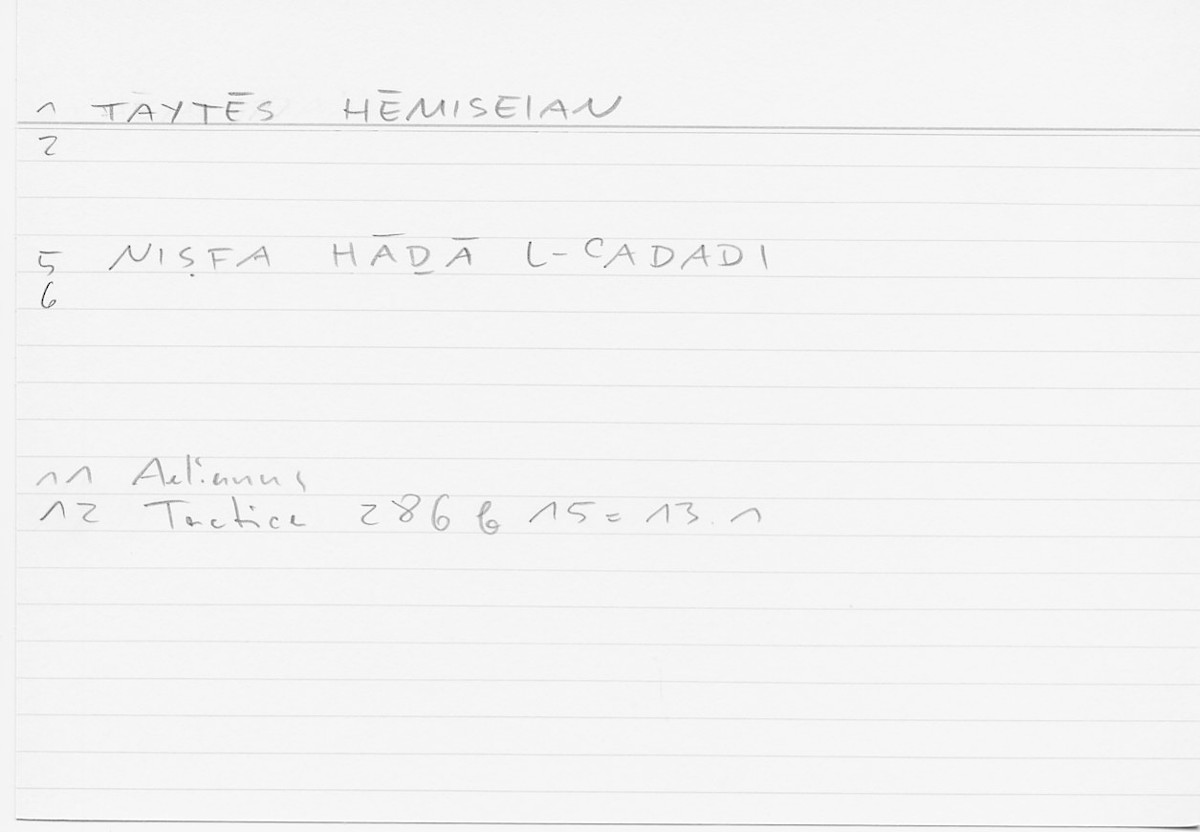 1 TAYTĒS HĒMISEIAN
2
5 NIṢFA HĀḎĀ L-ʿADADI
6
11 Aelianus
12 Tactica 286 b 15 = 13.1